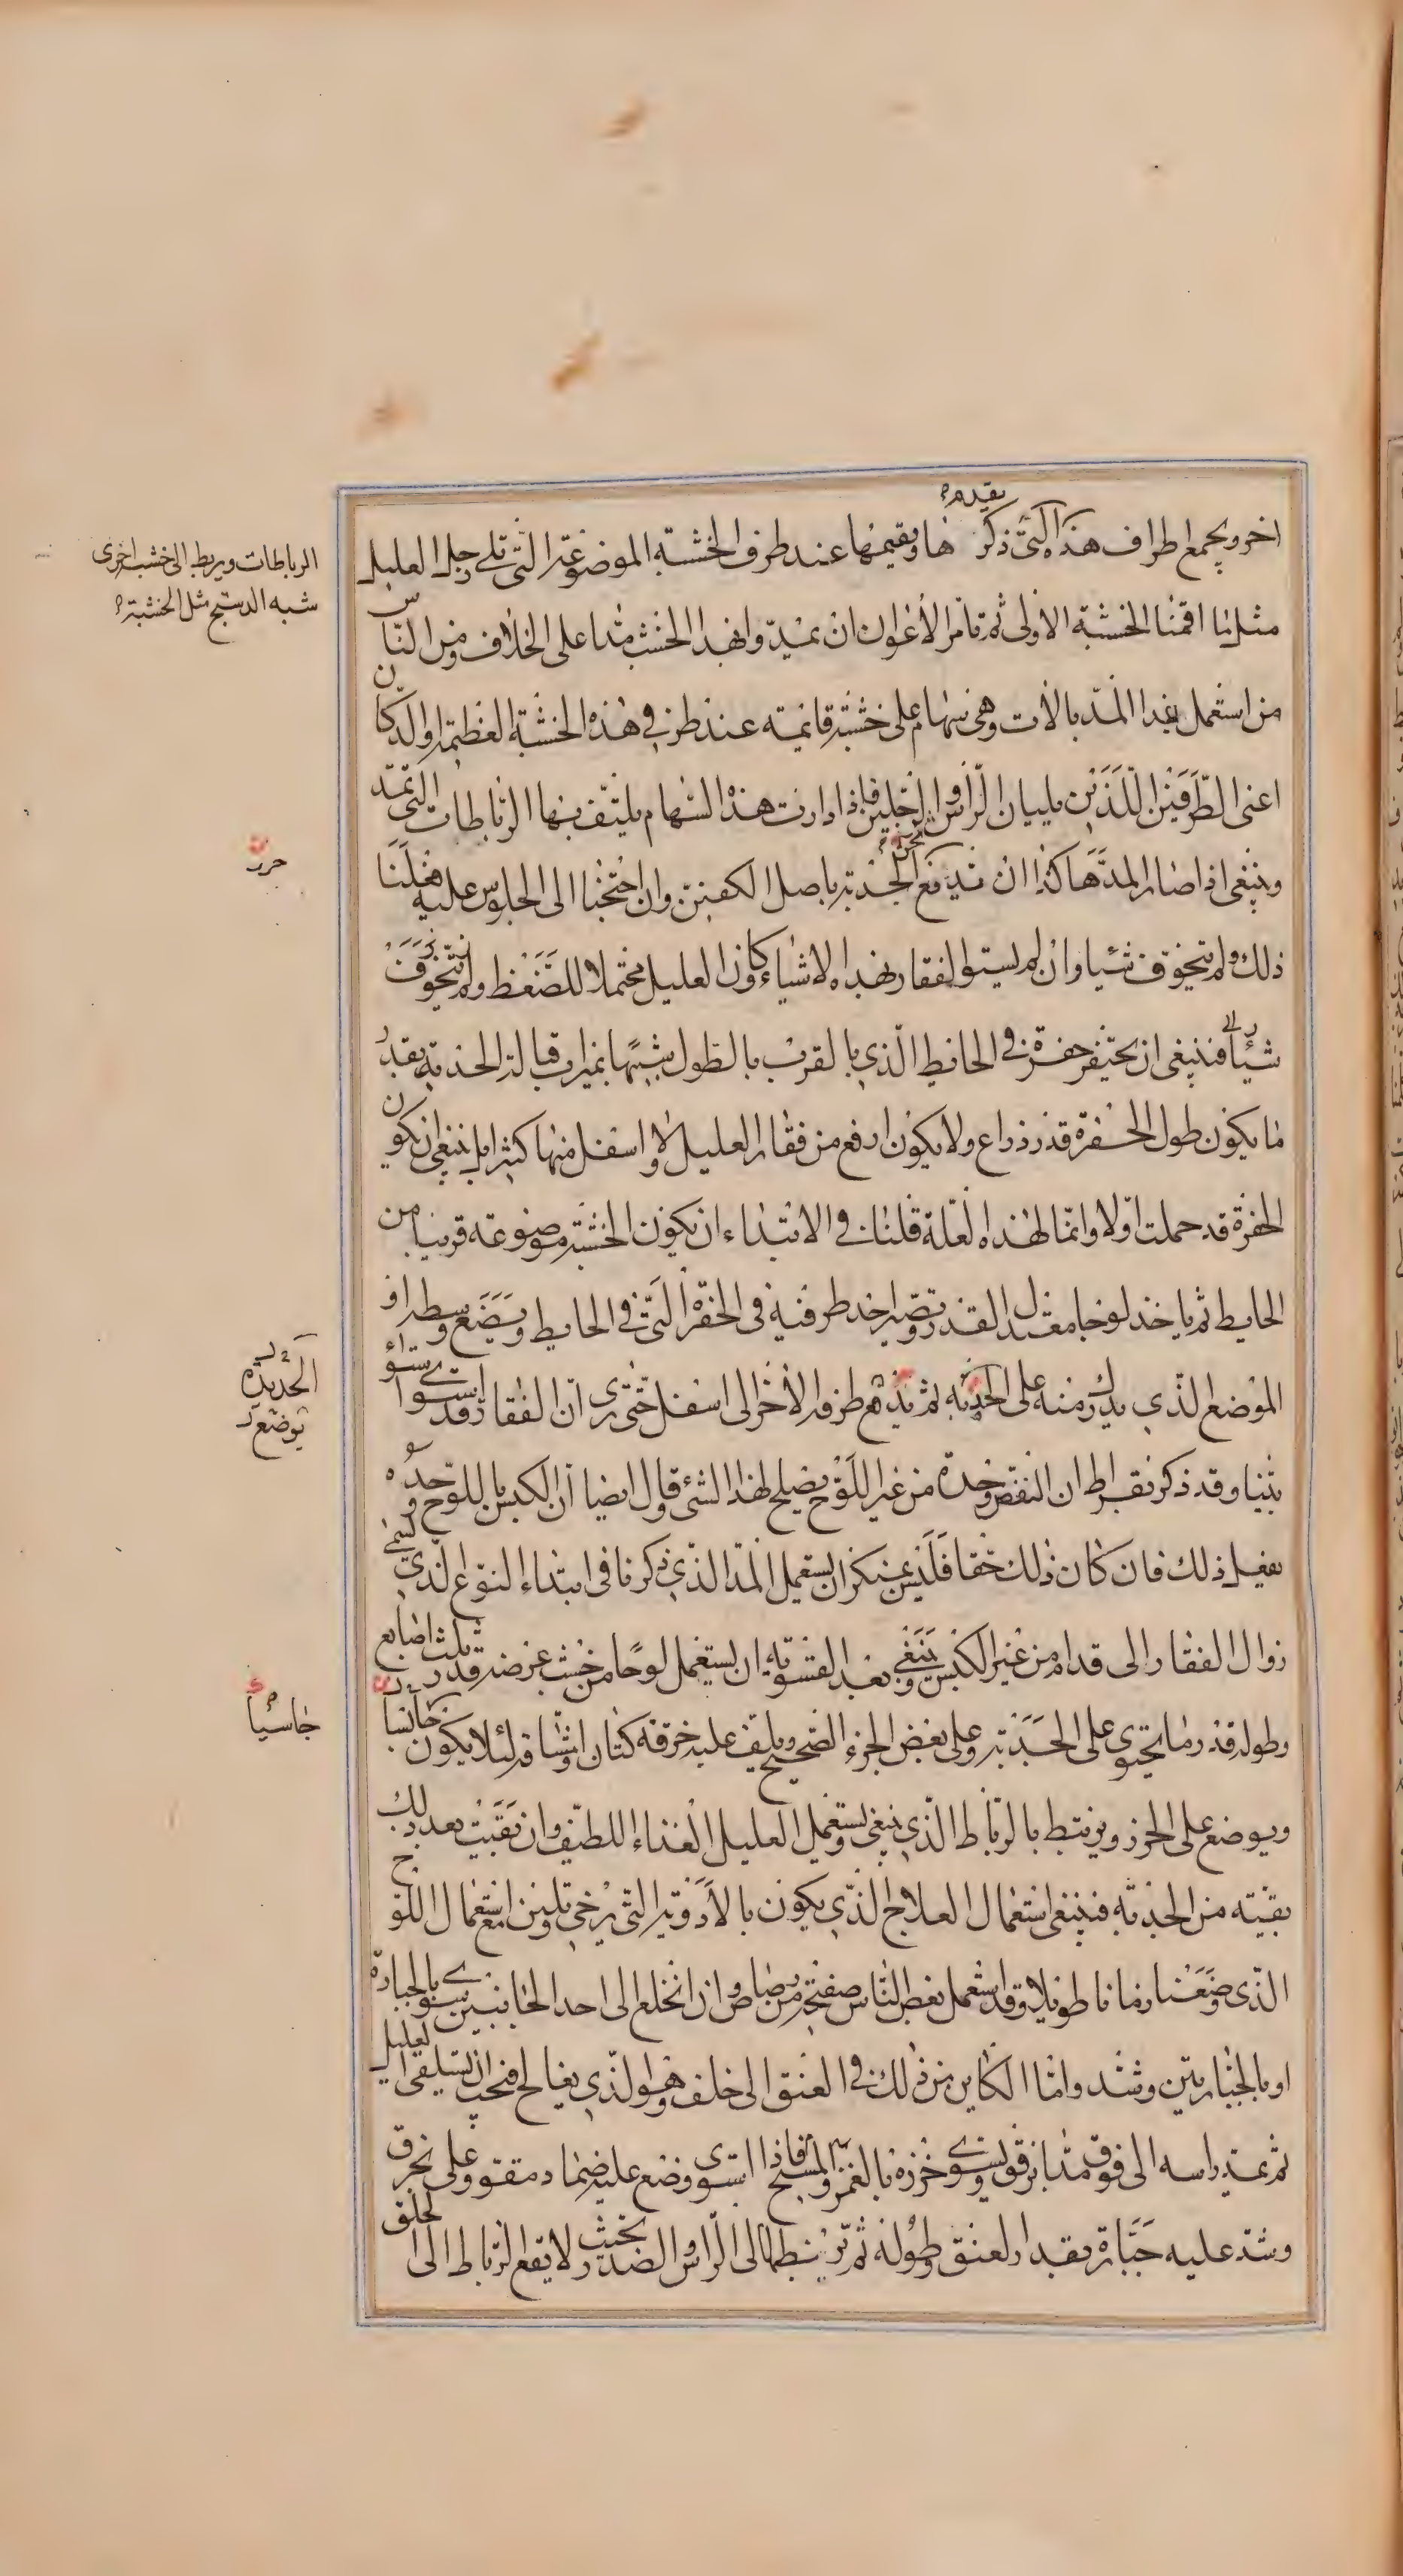 اخر ويجمع اطراف هذه التى تقدم ذكرها ويقيمها عند طرف الخشبة الموضوعة التى تلى رجل العليل
مثل ما اقمنا الخشبة الاولى ثم تأمر الأعوان ان يمدوا بهذا الخشب مدا على الخلاف ومن الناس
من استعمل بهذا المد بالات وهى سهام على خشبة قائمة عند طرفى هذه الخشبة العظيمة او الدكان
اعنى الطرفين اللذين يليان الرأس والرجلين فاذا ادارت هذه السهام يلتف بها الرباطات التى تمد
وينبغى اذا صار المد هاكذا ان ندفع الحدبة باصل الكفين وان احتجنا الى الجلوس عليه فعلنا
ذلك ولم نتخوف شيئا وان لم يستو الفقار بهذه الاشياء وكان العليل محتملا للضغط ولم نتخوف
شيئا فينبغى ان يحتفر حفرة فى الحائط الذى بالقرب بالطول شبيها بميزاب قبالة الحدبة بقدر
ما يكون طول الحفرة قدر ذراع ولا يكون ارفع من فقار العليل ولا اسفل منها كثيرا بل ينبغى ان يكون
الحفرة قد حملت اولا وانما لهذه العلة قلنا فى الابتداء ان يكون الخشبة موضوعة قريبا من
الحايط ثم ياخذ لوحا معتدل القدر وتصير احد طرفيه فى الحفرة التى فى الحايط ويضع وسطه او
الموضع الذى يدرك منه على الحدبة ثم يدفع طرفه الأخر الى اسفل حتى نرى ان الفقار قد استوى استواء
بينا وقد ذكر بقراط ان النفض وحده من غير اللوح يصلح لهذا الشئ وقال ايضا ان الكبس باللوح وحده
يفعل ذلك فان كان ذلك حقا فليس بمنكر ان يستعمل المد الذى ذكرنا فى ابتداء النوع الذى يسمى
زوال الفقار الى قدام من غير الكبس وينبغى بعد التسوية ان يستعمل لوحا من خشب عرضه قدر ثلث اصابع
وطوله قدر ما يحتوى على الحدبة وعلى بعض الجزء الصحيح ويلف عليه خرقة كتان او مشاقة لئلا يكون جاسيا
ويوضع على الخرز ويرتبط بالرباط الذى ينبغى ويستعمل العليل الغذاء اللطيف وان بقيت بعد ذلك
بقية من الحدبة فينبغى استعمال العلاج الذى يكون بالأدوية التى يرخى وتلين مع استعمال اللوح
الذى وضعنا زمانا طويلا وقد استعمل بعض الناس صفيحة من رصاص وان انخلع الى احد الجانبين سوى بالجبارة
او بالجبارتين وشد واما الكاين من ذلك فى العنق الى خلف وهو الذى يعالج فيجب ان يستلقى العليل
ثم تمد راسه الى فوق مدا برفق ويسوى خرزه بالغمز والمسح فاذا استوى وضع عليه ضماد مقو وعلى خرق
وشد عليه جبارة بقدر العنق وطوله ثم تربطها الى الرأس والصدر بحيث لا يقع الرباط الى الحلق
الرباطات ويربط الى خشبة اخرى
شبه الدستج مثل الخشبة
حرر
الحديدة
توضع
جاسيا